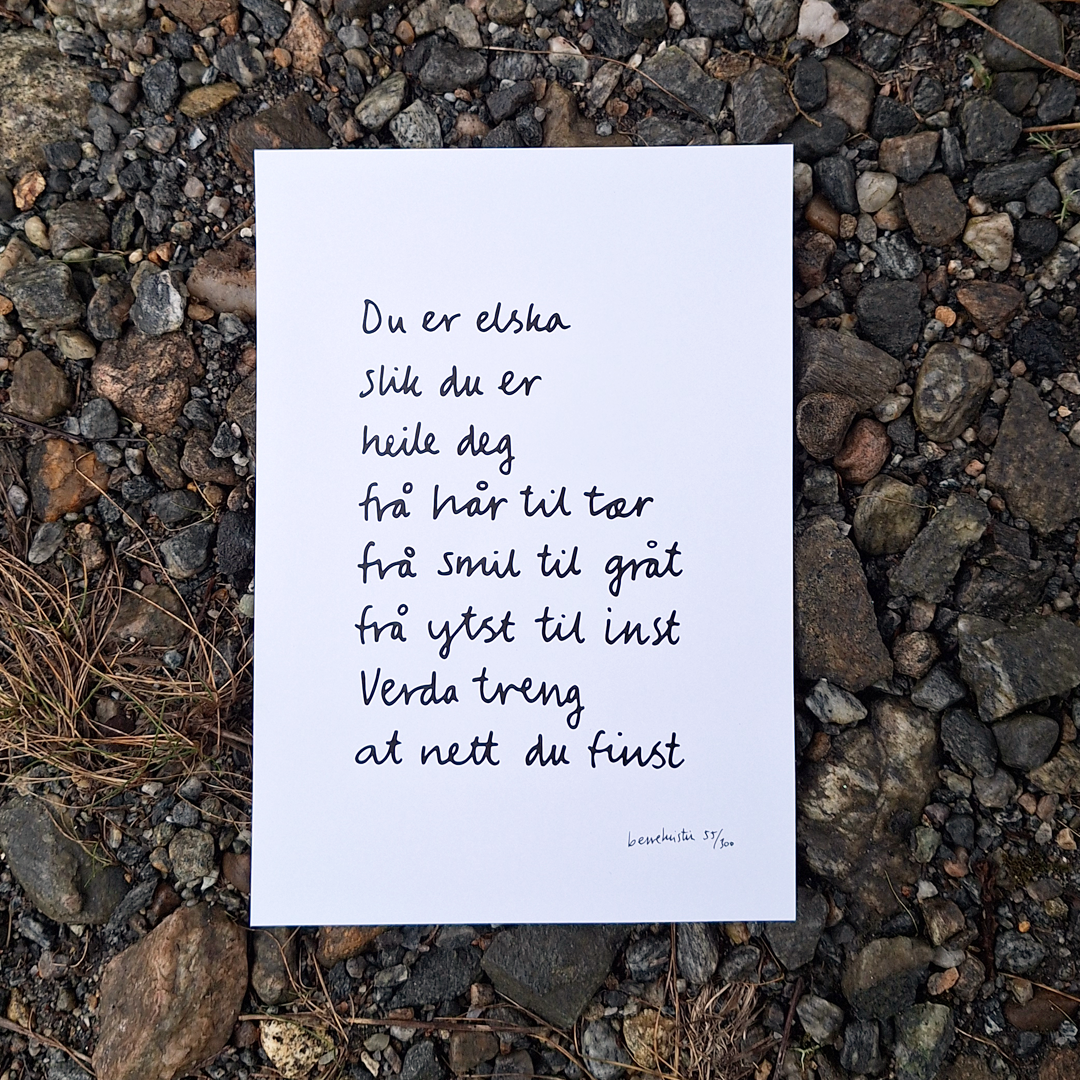 Du er elska
slik du er
heile deg
frå hår til tær
frå smil til gråt
frå ytst til inst
Verda treng
at nett du finst
55/300